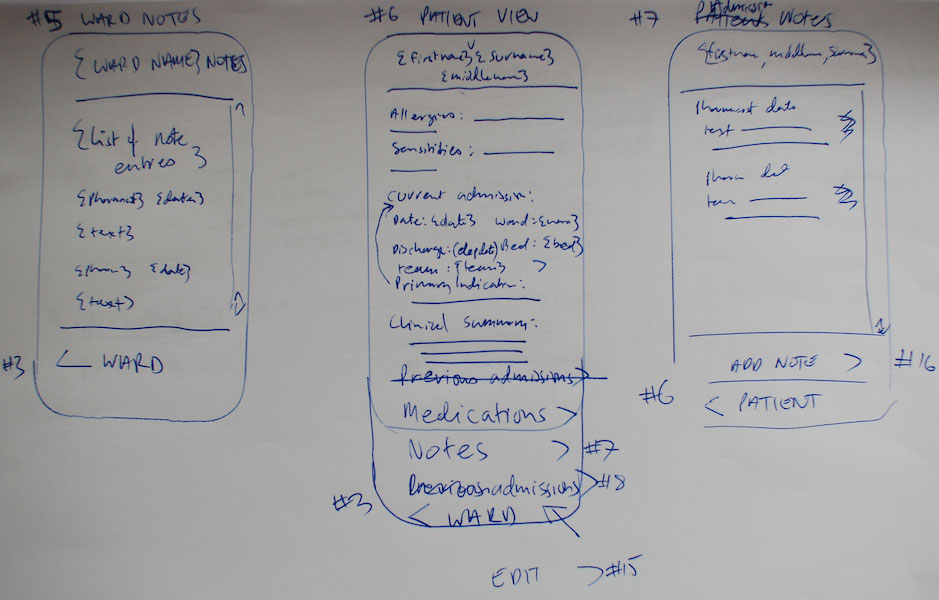 #5 WARD NOTES
{WARD NAME} NOTES
{List of note
entries}
{pharmacist} {date}
{text}
{pharm} {date}
{text}
#3 < WARD
#6 PATIENT VIEW
{firstname} {surname}
{middlename}
Allergies:
Sensitivities:
Current admission:
Date: {date} Ward: {name}
Discharge: Bed: {bed}
team: {team} >
Primary Indication:
Clinical Summary:
Previous admissions >
Medications >
Notes > #7
admissions > #8
#3 < WARD
EDIT > #15
#7 Notes
{firstname, middlename, surname}
Pharmacist date
text
Pharm dat
ADD NOTE > #16
#6 < PATIENT